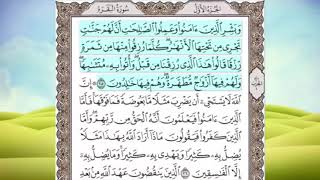 الجزء الأول سورة البقرة
وَبَشِّرِ الَّذِينَ ءَامَنُوا وَعَمِلُوا الصَّالِحَاتِ أَنَّ لَهُمْ جَنَّاتٍ
تَجْرِي مِن تَحْتِهَا الْأَنْهَارُ كُلَّمَا رُزِقُوا مِنْهَا مِن ثَمَرَةٍ
رِّزْقًا قَالُوا هَٰذَا الَّذِي رُزِقْنَا مِن قَبْلُ وَأُتُوا بِهِ مُتَشَابِهًا
وَلَهُمْ فِيهَا أَزْوَاجٌ مُّطَهَّرَةٌ وَهُمْ فِيهَا خَالِدُونَ ٢٥ إِنَّ
اللَّهَ لَا يَسْتَحْيِي أَن يَضْرِبَ مَثَلًا مَّا بَعُوضَةً فَمَا فَوْقَهَا فَأَمَّا
الَّذِينَ ءَامَنُوا فَيَعْلَمُونَ أَنَّهُ الْحَقُّ مِن رَّبِّهِمْ وَأَمَّا
الَّذِينَ كَفَرُوا فَيَقُولُونَ مَاذَا أَرَادَ اللَّهُ بِهَٰذَا مَثَلًا
يُضِلُّ بِهِ كَثِيرًا وَيَهْدِي بِهِ كَثِيرًا وَمَا يُضِلُّ بِهِ
إِلَّا الْفَاسِقِينَ ٢٦ الَّذِينَ يَنقُضُونَ عَهْدَ اللَّهِ مِن بَعْدِ